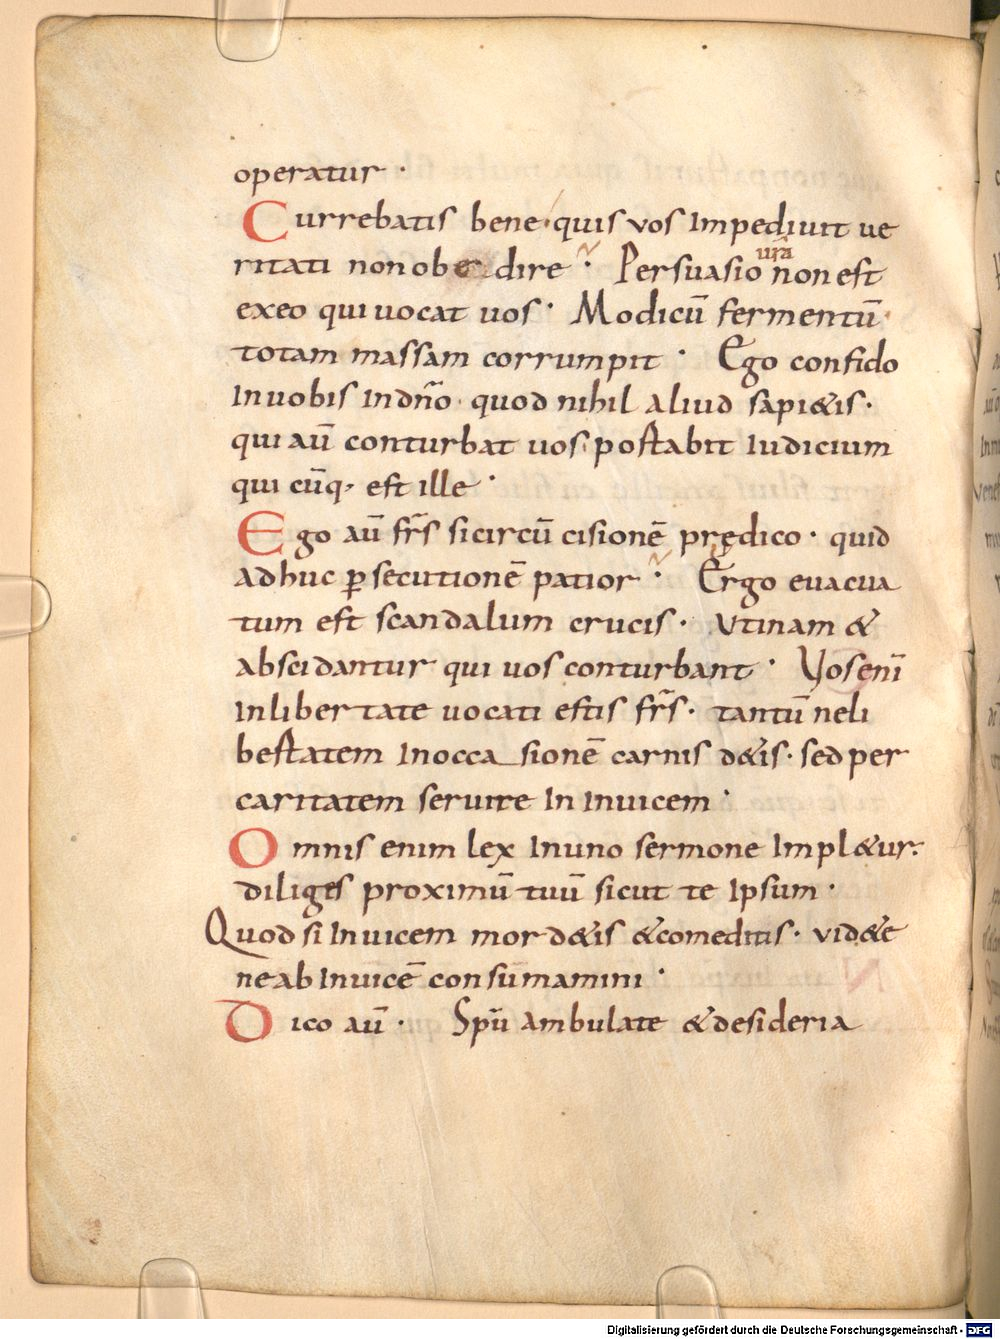 operatur ·
Currebatis bene · quis vos Impediuit ue
ritati non obe dire · Persuasio ur̄a non est
exeo qui uocat uos · Modicū fermentū
totam massam corrumpit · Ego confido
In uobis In dn̄o · quod nihil aliud sapi&is ·
qui aū conturbat uos · portabit Iudicium
qui cūq, est ille ·
Ego aū fr̄s si circū cisionē prędico · quid
adhuc ꝑsecutionē patior · Ergo euacua
tum est scandalum crucis · Utinam &
abscidantur qui uos conturbant · Vos enī
In libertate uocati estis fr̄s · tantū ne li
bertatem In occa sionē carnis d&is · sed per
caritatem seruire In Inuicem ·
Omnis enim lex In uno sermone Impl&ur ·
diliges proximū tuū sicut te Ipsum ·
Quod si Inuicem mord&is & comeditis · vid&e
ne ab Inuicē consūmamini ·
Dico aū · Spū ambulate & desideria
Digitalisierung gefördert durch die Deutsche Forschungsgemeinschaft - DFG